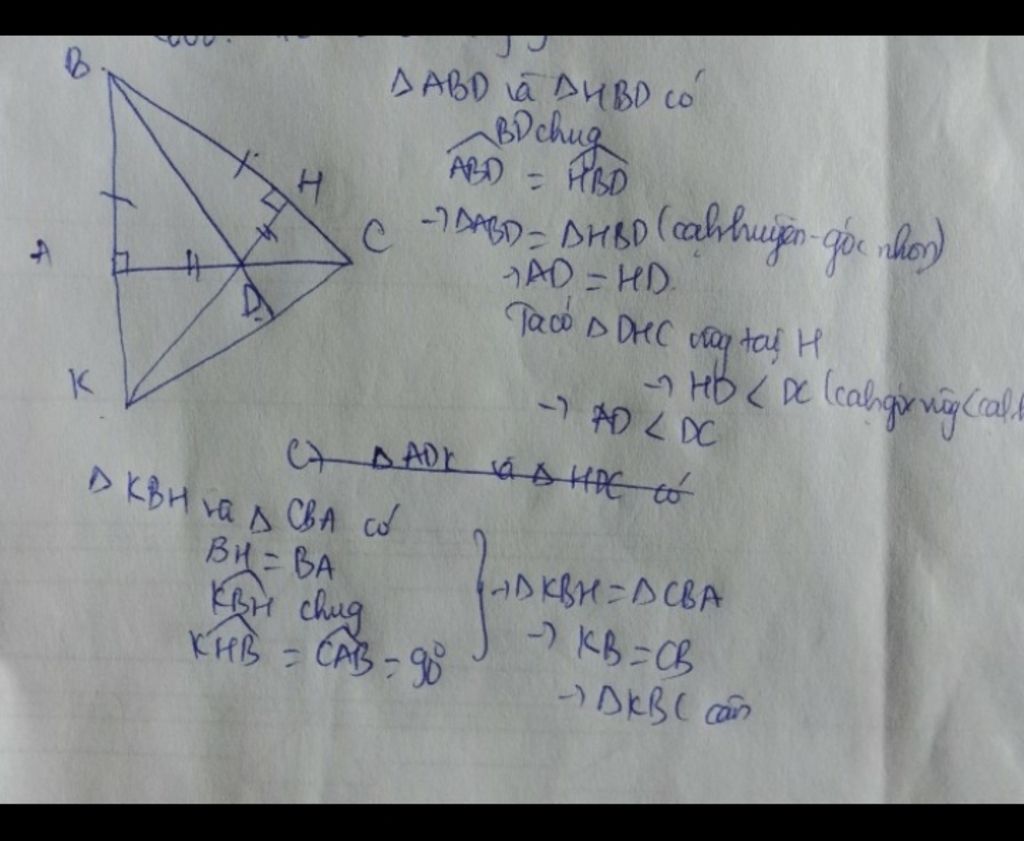 B
H
C
A
D
K
ΔABD và ΔHBD có
BD chug
ABD = HBD
→ ΔABD = ΔHBD (cạh huyền - góc nhọn)
→ AD = HD.
Ta có ΔDHC vôg tại H
→ HD < DC (cạh góx vôg < cạh
→ AD < DC
C) ΔADK và ΔHDC có
ΔKBH và ΔCBA có
BH = BA
KBH chug
KHB = CAB = 90°
→ ΔKBH = ΔCBA
→ KB = CB
→ ΔKBC cân